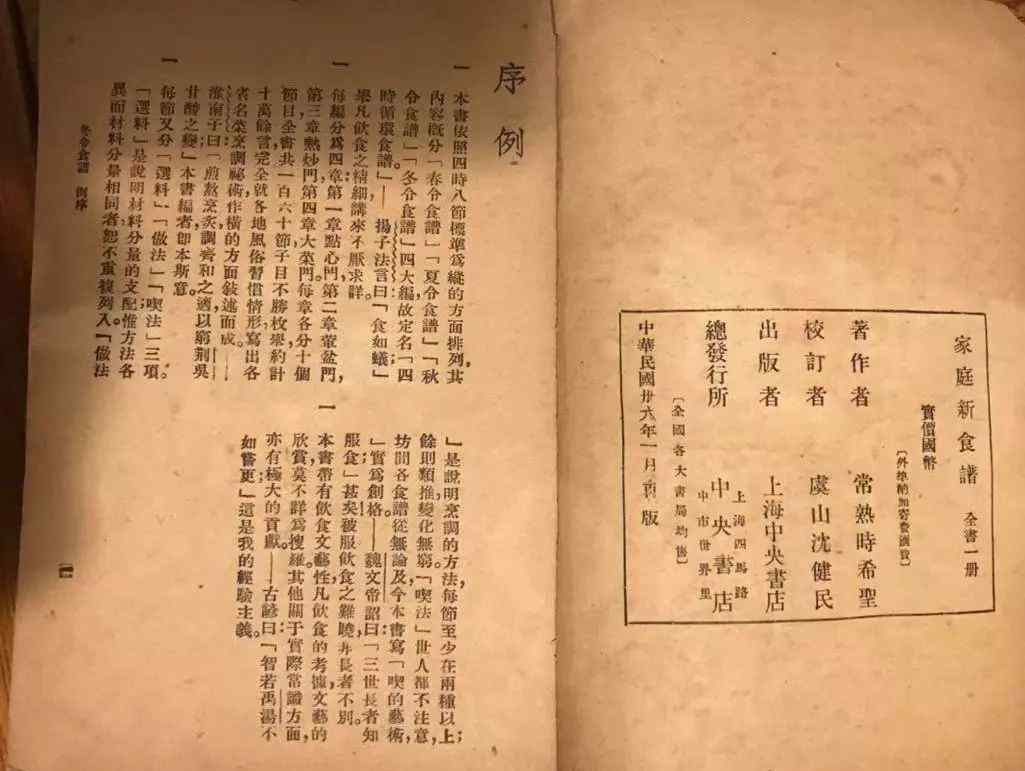 家庭新食譜 全書一册
實價國幣
〔外埠酌加寄費滙費〕
著作者 常熟時希聖
校訂者 虞山沈健民
出版者 上海中央書店
總發行所 中央書店
上海四馬路
中市世界里
〔全國各大書局均售〕
中華民國卅六年一月再版
序例
一 本書依照四時八節標準爲縱的方面排列,其
內容概分「春令食譜」「夏令食譜」「秋
令食譜」「冬令食譜」四大編故定名「四
時循環食譜」——揚子法言曰「食如蟻」
舉凡飲食之精細講來不厭求詳。
一 每編分爲四章第一章點心門第二章葷盆門,
第三章熱炒門第四章大菜門。每章各分十個
節目全書共一百六十節子目不勝枚舉約計
十萬餘言完全就各地風俗習慣情形寫出各
省名菜烹調祕術作橫的方面敍述而成——
淮南子曰「煎熬烹炙調齊和之適以窮荊吳
甘酸之變」本書編者卽本斯意。
一 每節又分「選料」「做法」「喫法」三項。
「選料」是說明材料分量的支配惟方法各
異而材料分量相同者恕不重複列入「做法
」是說明烹調的方法每節至少在兩種以上;
餘則類推,變化無窮「喫法」世人都不注意,
坊間各食譜從無論及今本書寫「喫的藝術,
」實爲創格——魏文帝詔曰「三世長者知
服食」甚矣被服飲食之難曉非長者不別。
一 本書帶有飲食文藝性凡飲食的考據文藝的
欣賞莫不詳爲搜羅其他關于實際常識方面,
亦有極大的貢獻——古諺曰「智若禹湯不
如嘗更」這是我的經驗主義。
冬令食譜 例序